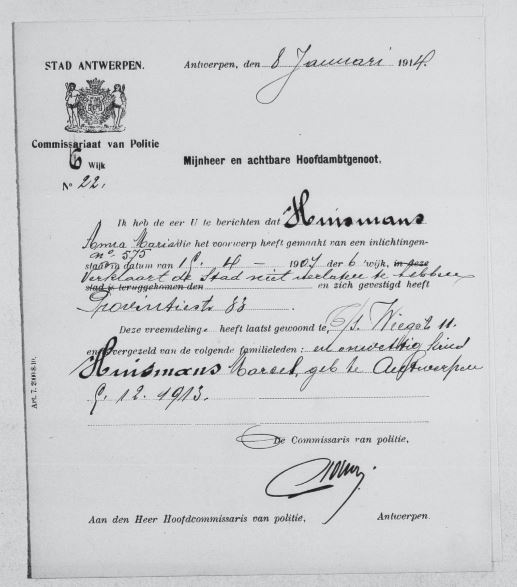 STAD ANTWERPEN.
Antwerpen, den 8 Januari 1914.
Commissariaat van Politie
6 Wijk
N° 22.
Mijnheer en achtbare Hoofdambtgenoot.
Ik heb de eer U te berichten dat Huismans
Anna Maria die het voorwerp heeft gemaakt van een inlichtingen-
n° 575
staat datum van 4 - 1907 der 6 wijk, in deze
verklaart de Stad niet verlaten te hebben
stad is teruggekomen den en zich gevestigd heeft
Provintiestr 83
Deze vreemdeling heeft laatst gewoond te, Wiegstr 11.
en vergezeld van de volgende familieleden : en onwettig kind
Huismans Marcel, geb te Antwerpen
12. 1913.
De Commissaris van politie,
Aan den Heer Hoofdcommissaris van politie, Antwerpen.